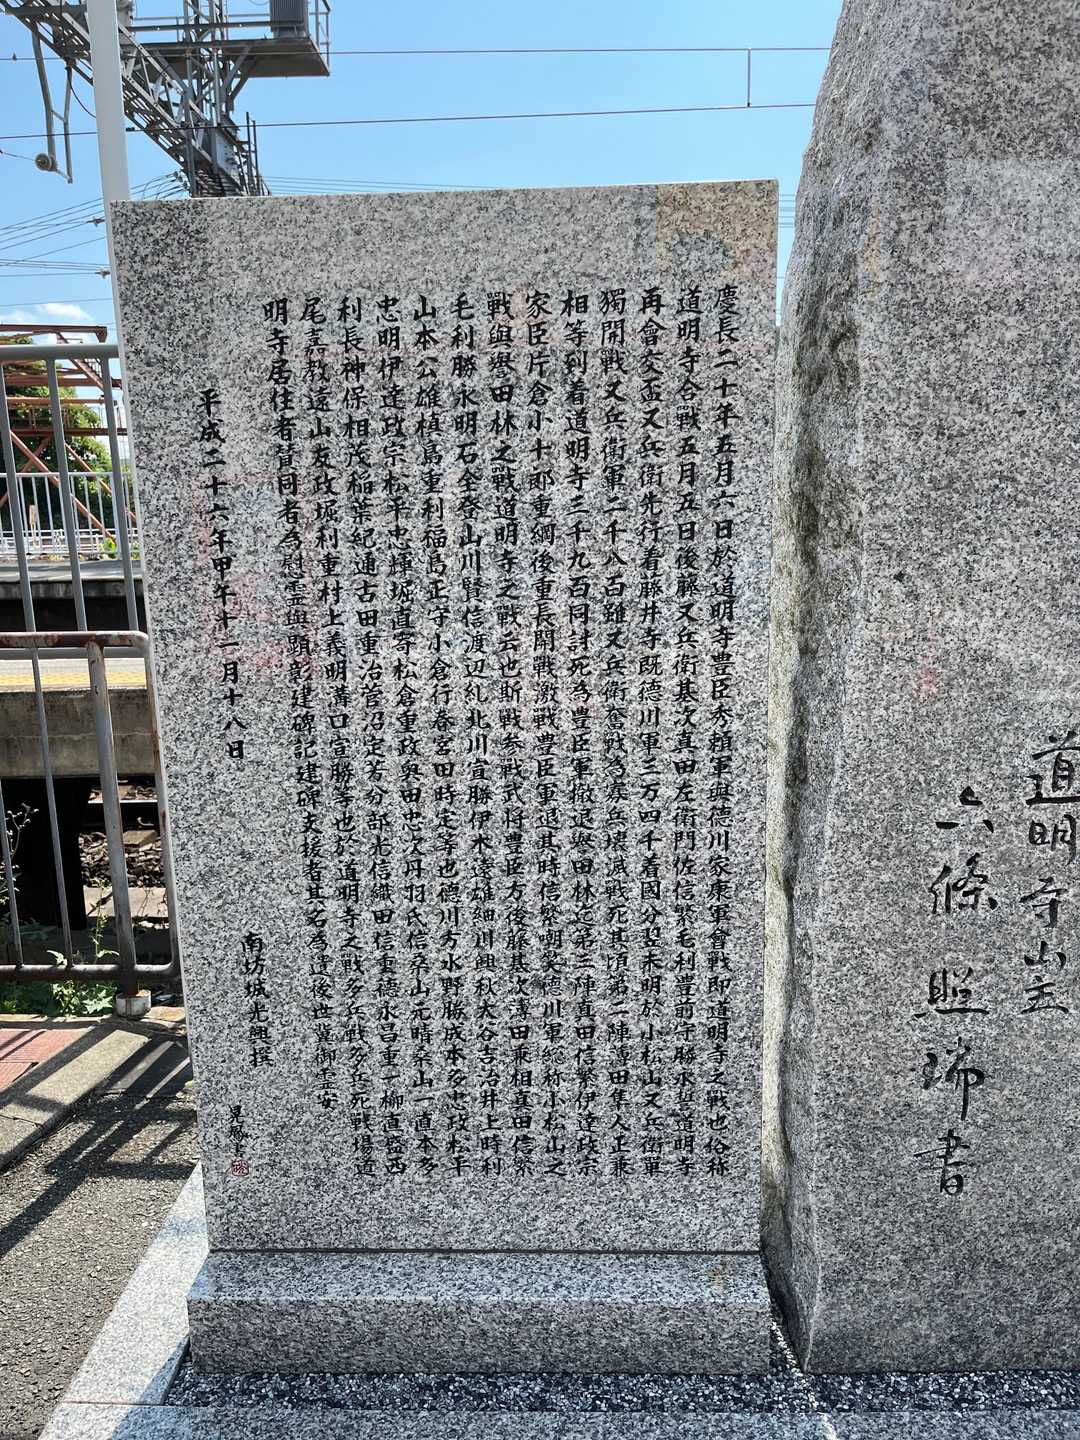 道明寺山主
六條照瑞書
慶長二十年五月六日於道明寺豊臣秀頼軍與德川家康軍會戰即道明寺之戰也俗称
道明寺合戰五月五日後藤又兵衛基次真田左衛門佐信繁毛利豊前守勝永誓道明寺
再會交盃又兵衛先行着藤井寺既德川軍三万四千着國分翌未明於小松山又兵衛軍
獨開戰又兵衛軍二千八百雖又兵衛奮戰為寡兵壊滅戰死其頃第二陣薄田隼人正兼
相等到着道明寺三千九百同討死為豊臣軍撤退與田林迄第三陣真田信繁伊達政宗
家臣片倉小十郎重綱後重長開戰激戰豊臣軍退其時信繁嘲笑德川軍総称小松山之
戰與譽田林之戰道明寺之戰云也斯戰参戰武将豊臣方後藤基次薄田兼相真田信繁
毛利勝永明石全登山川賢信渡辺糺北川宣勝伊木遠雄細川興秋大谷吉治井上時利
山本公雄槙島重利福島正守小倉行春宮田時定等也德川方水野勝成本多忠政松平
忠明伊達政宗松平忠輝堀直寄松倉重政奥田忠次丹羽氏信桑山元晴桑山一直本多
利長神保相茂稲葉紀通古田重治菅沼定芳分部光信織田信重德永昌重一柳直盛西
尾嘉教遠山友政堀利重村上義明溝口宣勝等也於道明寺之戰多兵戰多兵死戰場道
明寺居住者賛同者為慰霊與顕彰建碑記建碑支援者其名為遺後世冀御霊安
平成二十六年甲午十二月十八日
南坊城光興撰